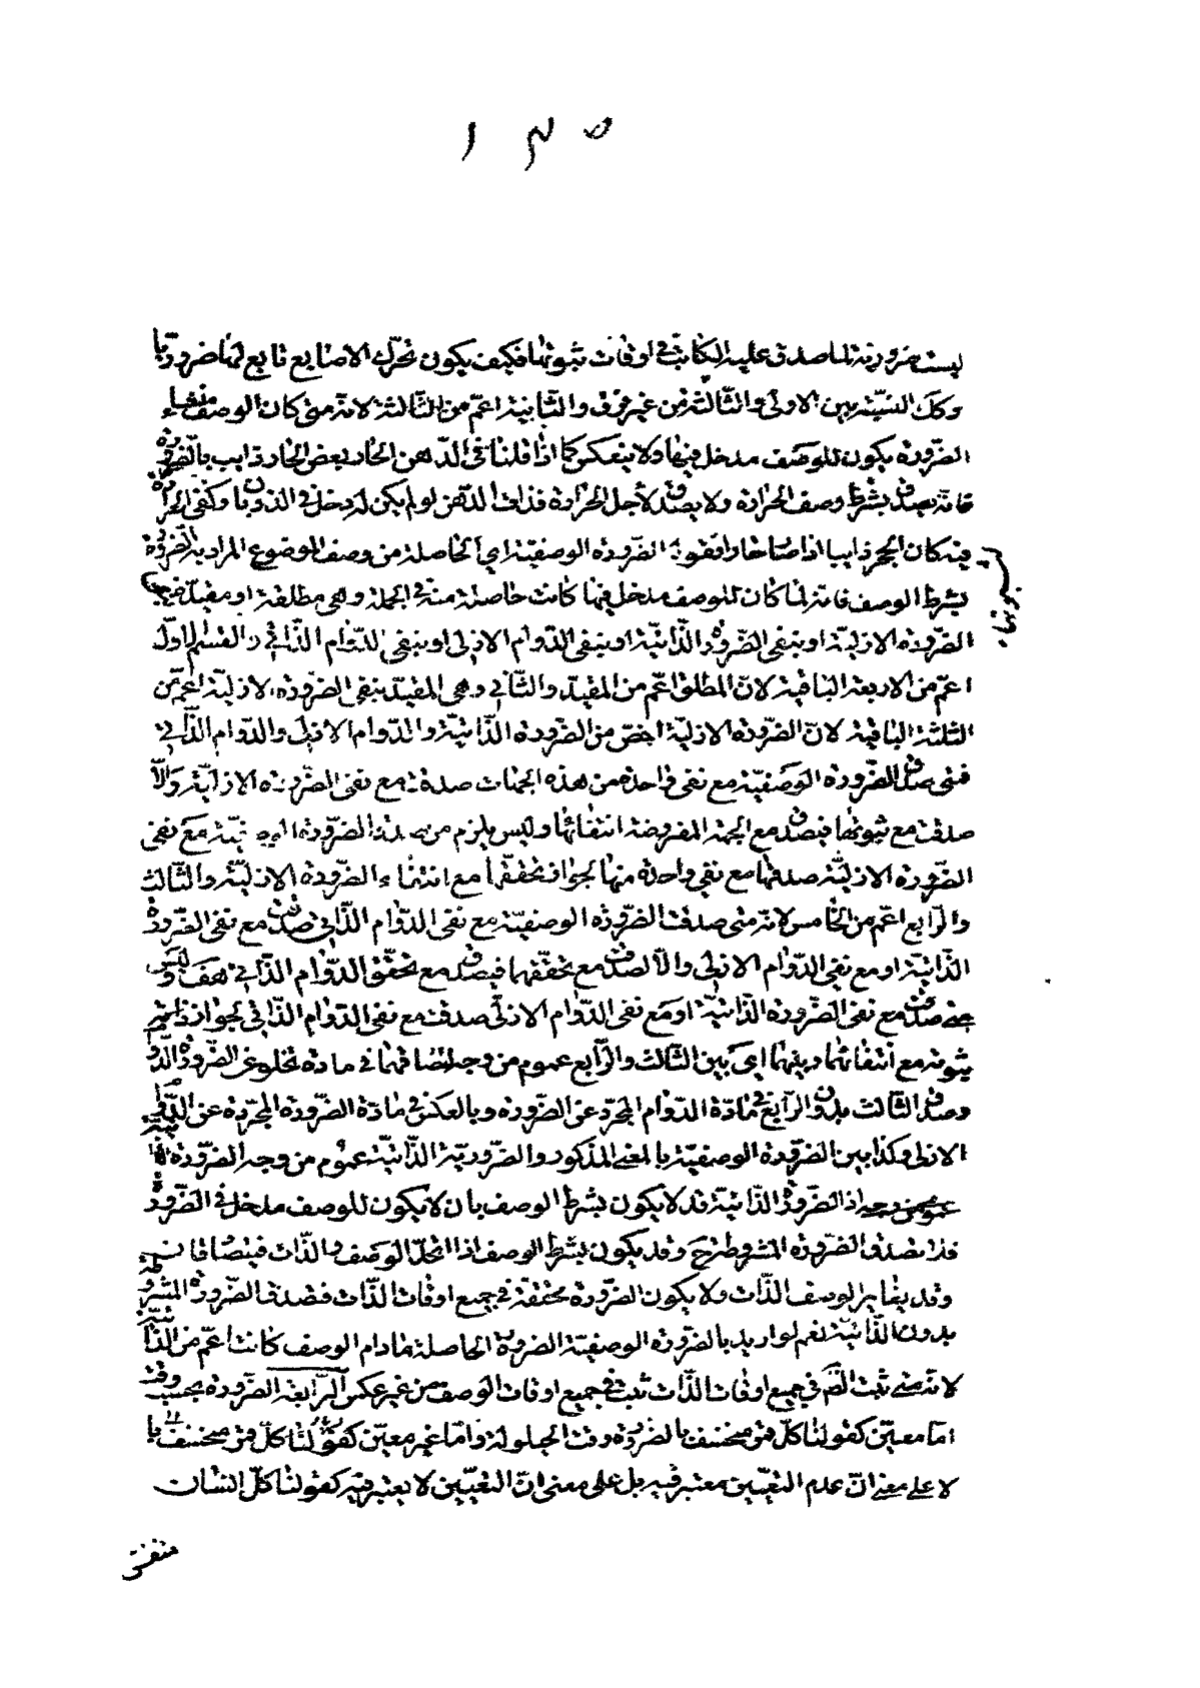 ١٣٥
ليست ضرورية لما صدق عليه الكاتب فى اوقات ثبوتها فكيف يكون تحرّك الاصابع تابع لها ضروريّا
وكك النسبة بين الاولى والثالثة من غير فرق والثانية اعمّ من الثالثة لانّه متى كان الوصف منشاء
الضرورة يكون للوصف مدخل فيها ولا ينعكس كما اذا قلنا فى الدّهن الحار بعض الحار ذايب بالضّرورة
فانّه يصدق بشرط وصف الحرارة ولا يصدق لأجل الحرارة فذات الدّهن لو لم يكن له دخل فى الذوبان وكفى الحرارة
فيه كان الحجر ذايبا اذا صار حارا فقوله الضّرورة الوصفيّة اى الحاصلة من وصف الموضوع المراد به الضّرورة
بشرط الوصف فانّه لما كان للوصف مدخل فيها كانت حاصلة منه فى الجملة وهى مطلقة او مقيّدة بنفى
الضّرورة الازليّة او بنفى الضّرورة الذّاتيّة او بنفى الدّوام الازلى او بنفى الدّوام الذّاتى والقسم الاوّل
اعمّ من الاربعة الباقية لانّ المطلق اعمّ من المقيّد والثّانى وهى المقيّد بنفى الضّرورة الازليّة اعمّ من
الثلثة الباقية لانّ الضّرورة الازليّة اخصّ من الضّرورة الذّاتيّة والدّوام الازلى والدّوام الذّاتى
فمتى صدق الضّرورة الوصفيّة مع نفى واحدة من هذه الجهات صدقت مع نفى الضّرورة الازليّة والّا
صدقت مع ثبوتها فيصدق مع الجهة المفروضة انتفائها وليس يلزم من صدق الضّرورة الوصفيّة مع نفى
الضّرورة الازليّة صدقها مع نفى واحدة منها لجواز تحققها مع انتفاء الضّرورة الازليّة والثّالث
والرّابع اعمّ من الخامس لانّه متى صدقت الضّرورة الوصفيّة مع نفى الدّوام الذّاتى صدقت مع نفى الضّرورة
الذّاتيّة او مع نفى الدّوام الازلى والّا لصدقت مع تحققهما فيصدق مع تحقّق الدّوام الذّاتى هف وليس
متى صدقت مع نفى الضّرورة الذّاتيّة او مع نفى الدّوام الازلى صدقت مع نفى الدّوام الذّاتى لجواز
ثبوته مع انتفائهما وبينهما اى بين الثّالث والرّابع عموم من وجه لتصادقهما فى مادة تخلو عن الضّرورة والدّوام
وصدق الثّالث بدون الرّابع فى مادّة الدّوام المجرّد عن الضّرورة وبالعكس فى مادّة الضّرورة المجرّدة عن الدّوام
الازلى وكذا بين الضّرورة الوصفيّة بالمعنى المذكور والضّروريّة الذّاتيّة عموم من وجه
اذ الضّرورة الذّاتيّة قد لا يكون بشرط الوصف بان لا يكون للوصف مدخل فى الضّرورة
فلا تصدق الضّرورة المشروطة ح وقد يكون بشرط الوصف اذا اتّحد الوصف والذّات فيتصادقان
وقد يغاير الوصف الذّات ولا يكون الضّرورة محققة فى جميع اوقات الذّات فتصدق الضّرورة المشروطة
بدون الذّاتيّة نعم لو اريد بالضّرورة الوصفيّة الضرورة الحاصلة مادام الوصف كانت اعمّ من الذّاتيّة
لانّه متى ثبت الضّم فى جميع اوقات الذّات ثبت فى جميع اوقات الوصف من غير عكس الرّابعة الضّرورة بحسب وقت
امّا معيّن كقولنا كلّ قمر منخسف بالضّرورة وقت الحيلولة وامّا غير معيّن كقولنا كلّ قمر منخسف
لا على معنى انّ عدم التعيّين معتبر فيه بل على معنى انّ التعيّين لا يعتبر فيه كقولنا كلّ انسان
متنفس